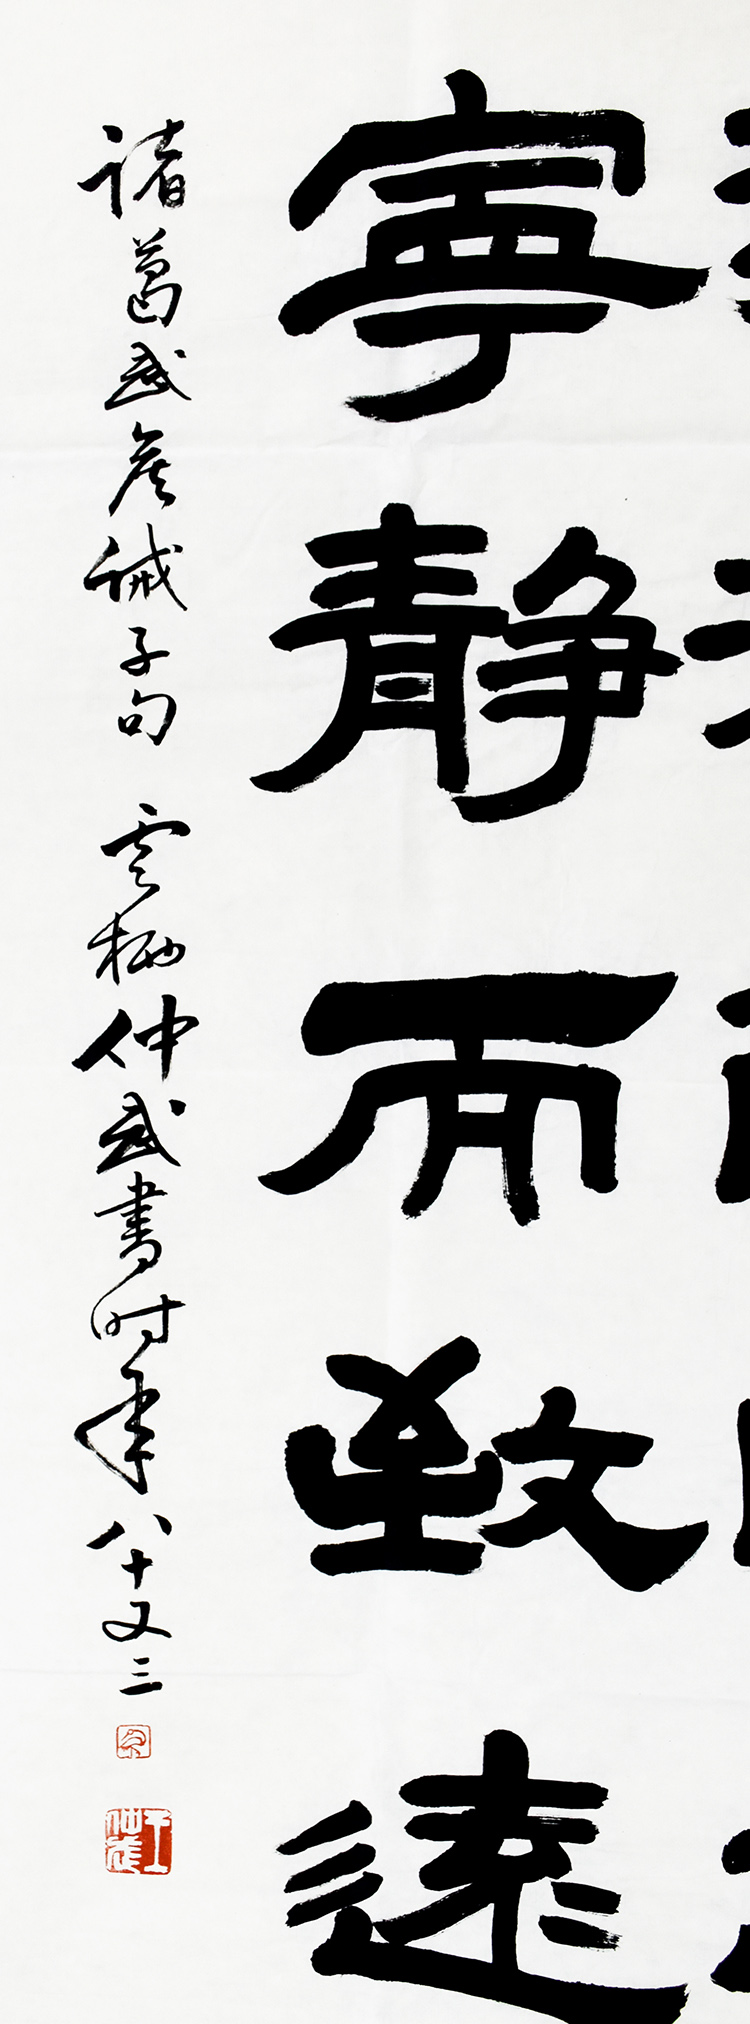 寧靜而致遠
諸葛武侯誡子句 雲栖仲武書時年八十又三
王仲武